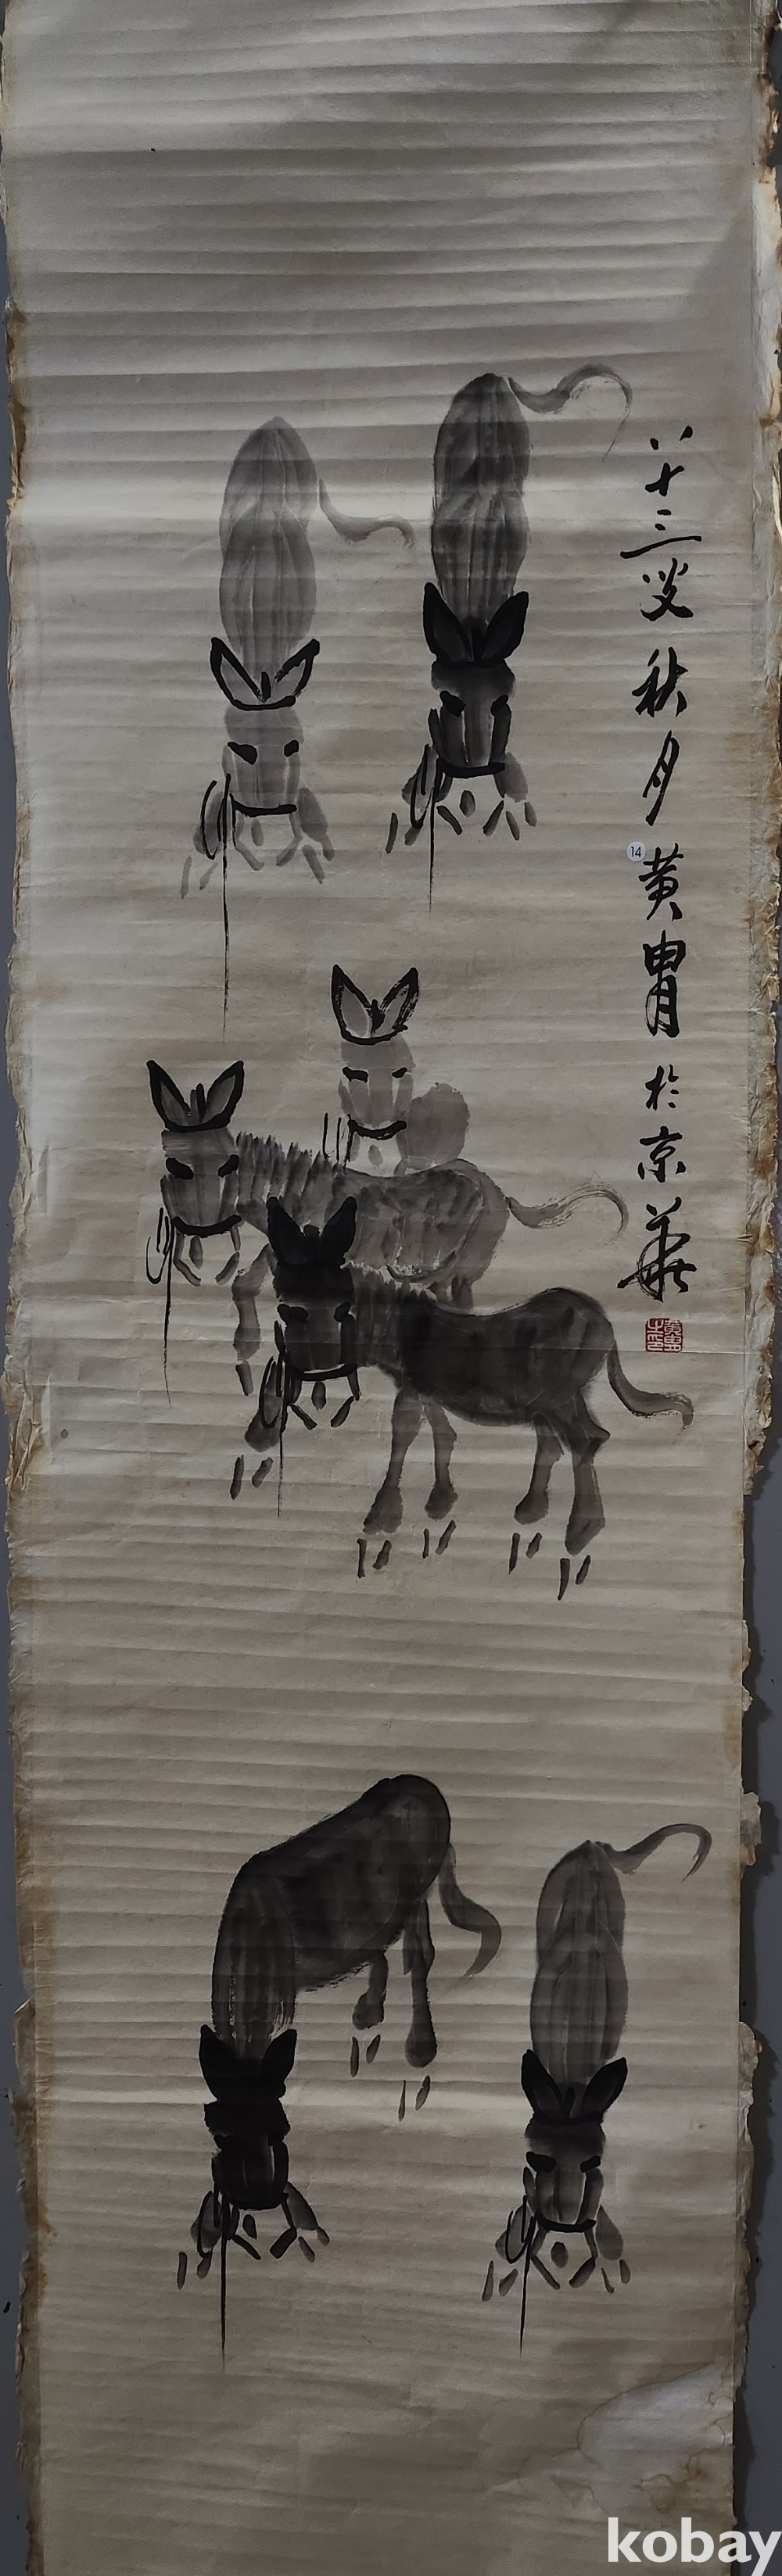 八十三叟秋月黄胄於京華
14
黄胄之印
kobay